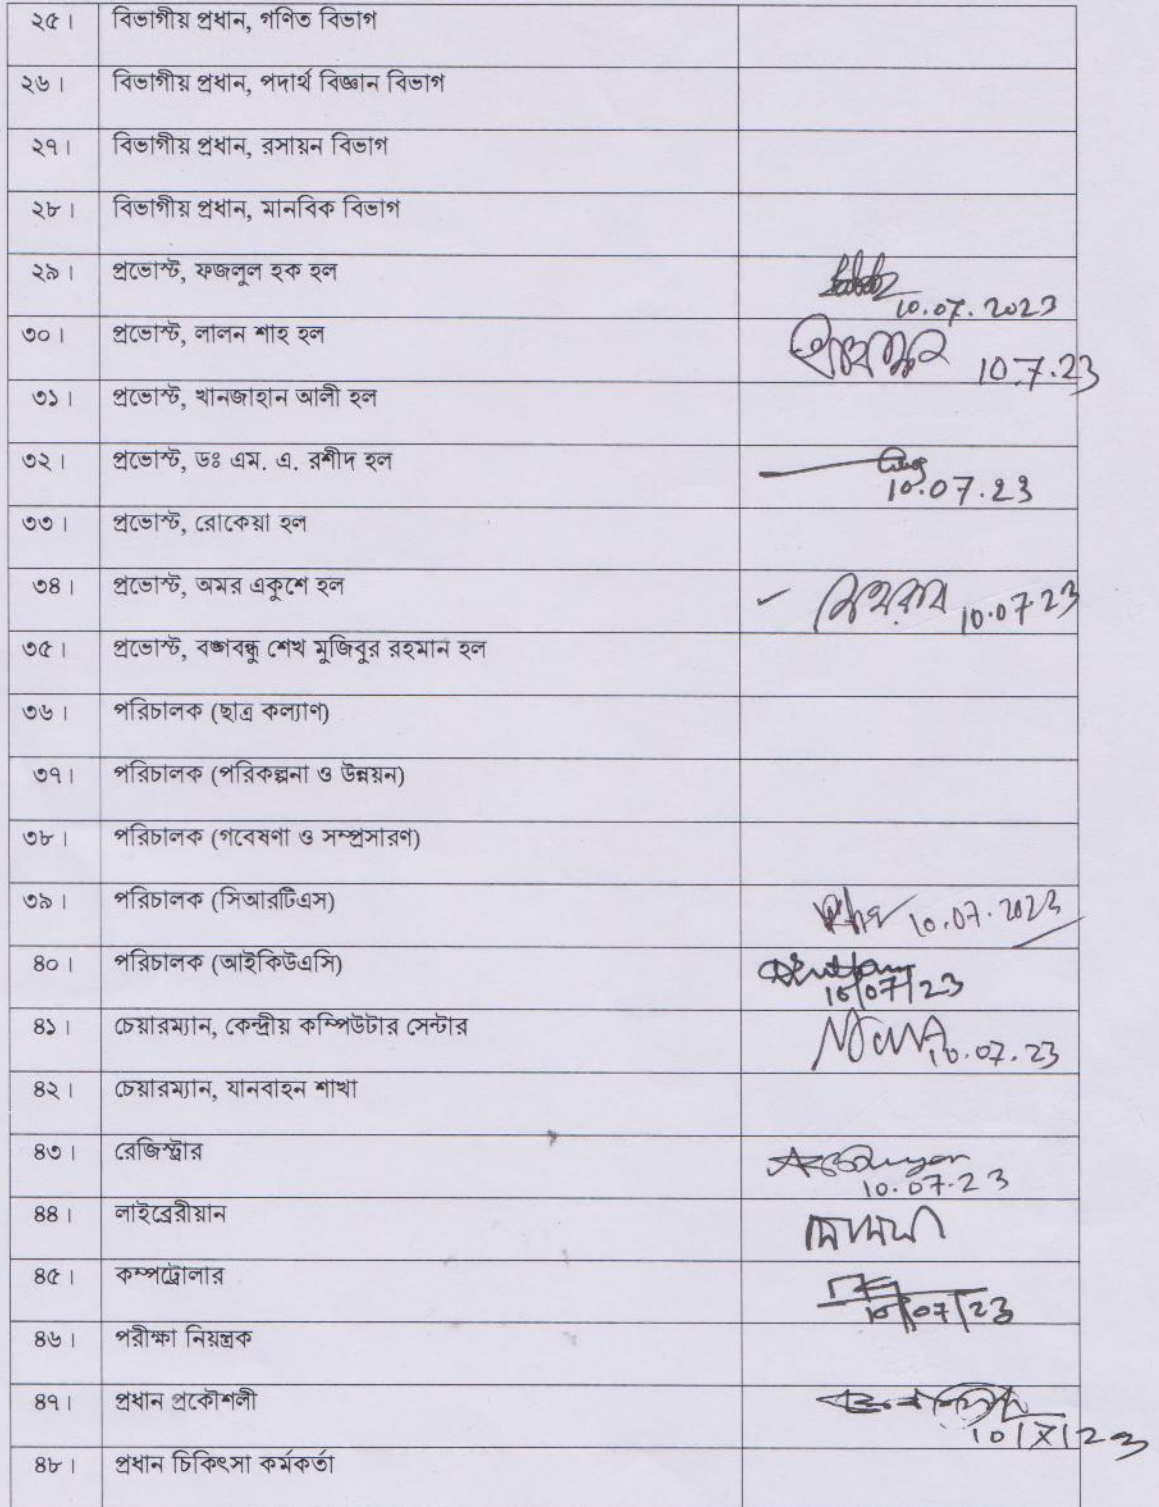 ২৫। বিভাগীয় প্রধান, গণিত বিভাগ
২৬। বিভাগীয় প্রধান, পদার্থ বিজ্ঞান বিভাগ
২৭। বিভাগীয় প্রধান, রসায়ন বিভাগ
২৮। বিভাগীয় প্রধান, মানবিক বিভাগ
২৯। প্রভোস্ট, ফজলুল হক হল
10.07.2023
৩০। প্রভোস্ট, লালন শাহ হল
10.7.23
৩১। প্রভোস্ট, খানজাহান আলী হল
৩২। প্রভোস্ট, ডঃ এম. এ. রশীদ হল
10.07.23
৩৩। প্রভোস্ট, রোকেয়া হল
৩৪। প্রভোস্ট, অমর একুশে হল
10.07.23
৩৫। প্রভোস্ট, বঙ্গবন্ধু শেখ মুজিবুর রহমান হল
৩৬। পরিচালক (ছাত্র কল্যাণ)
৩৭। পরিচালক (পরিকল্পনা ও উন্নয়ন)
৩৮। পরিচালক (গবেষণা ও সম্প্রসারণ)
৩৯। পরিচালক (সিআরটিএস)
10.07.2023
৪০। পরিচালক (আইকিউএসি)
10/07/23
৪১। চেয়ারম্যান, কেন্দ্রীয় কম্পিউটার সেন্টার
10.07.23
৪২। চেয়ারম্যান, যানবাহন শাখা
৪৩। রেজিস্ট্রার
10.07.23
৪৪। লাইব্রেরীয়ান
৪৫। কম্পট্রোলার
10/07/23
৪৬। পরীক্ষা নিয়ন্ত্রক
৪৭। প্রধান প্রকৌশলী
10/7/23
৪৮। প্রধান চিকিৎসা কর্মকর্তা